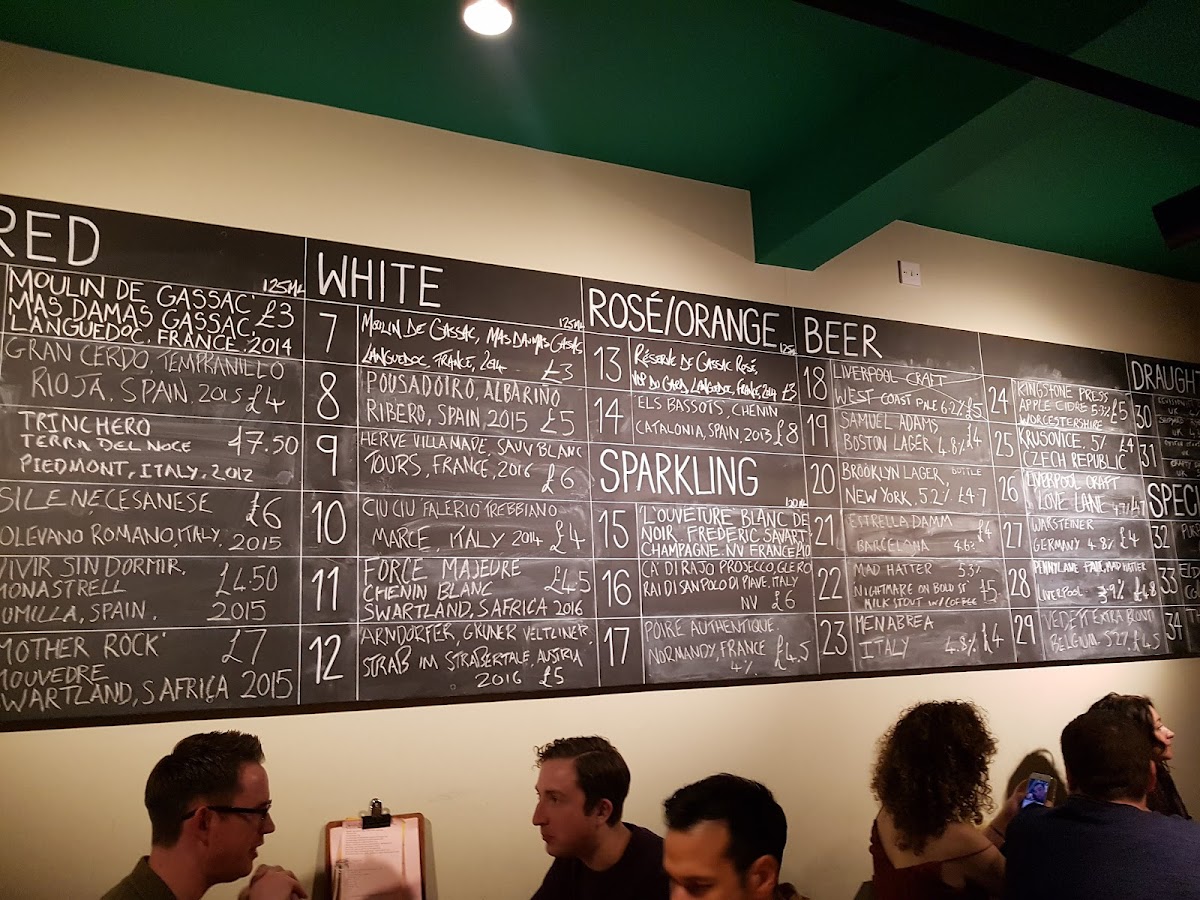 RED
125ML
MOULIN DE GASSAC
MAS DAMAS GASSAC, £3
LANGUEDOC, FRANCE, 2014
GRAN CERDO, TEMPRANILLO
RIOJA, SPAIN, 2015 £4
TRINCHERO
TERRA DEL NOCE £7.50
PIEDMONT, ITALY, 2012
SILENE, CESANESE £6
OLEVANO ROMANO, ITALY, 2015
VIVIR SIN DORMIR,
MONASTRELL £4.50
JUMILLA, SPAIN. 2015
MOTHER ROCK £7
MOUVEDRE
SWARTLAND, S AFRICA 2015
WHITE
125ML
7 MOULIN DE GASSAC, MAS DAUMAS GASSAC
LANGUEDOC, FRANCE, 2014 £3
8 POUSADOIRO, ALBARINO
RIBERO, SPAIN, 2015 £5
9 HERVE VILLAMADE, SAUV BLANC
TOURS, FRANCE, 2016 £6
10 CIU CIU FALERIO TREBBIANO
MARCE, ITALY 2014 £4
11 FORCE MAJEURE
CHENIN BLANC £4.5
SWARTLAND, S AFRICA 2016
12 ARNDORFER, GRUNER VELTLINER,
STRAß IM STRAßERTALE, AUSTRIA
2016 £5
ROSÉ/ORANGE
13 RÉSERVE DE GASSAC ROSÉ,
LANGUEDOC, FRANCE, 2014 £3
14 ELS BASSOTS, CHENIN
CATALONIA, SPAIN, 2013 £8
SPARKLING
15 L'OUVETURE BLANC DE
NOIR FREDERIC SAVART
CHAMPAGNE. NV FRANCE £10
16 CA' DI RAJO PROSECCO, GLERO
RAI DI SAN POLO DI PIAVE, ITALY
NV £6
17 POIRE AUTHENTIQUE,
NORMANDY, FRANCE £4.5
4%
BEER
18 LIVERPOOL CRAFT
WEST COAST PALE 6.2% £5
19 SAMUEL ADAMS £4
BOSTON LAGER 4.8%
20 BROOKLYN LAGER, BOTTLE
NEW YORK, 5.2% £4.7
21 ESTRELLA DAMM £4
BARCELONA 4.6%
22 MAD HATTER 5.3%
NIGHTMARE ON BOLD ST £5
MILK STOUT W/COFFEE
23 MENABREA
ITALY 4.8% £4
24 KINGSTONE PRESS
APPLE CIDRE 5.3% £5
WORCESTERSHIRE
25 KRUSOVICE, 5% £4
CZECH REPUBLIC
26 LIVERPOOL CRAFT
LOVE LANE £4.7
27 WARSTEINER
GERMANY 4.8% £4
28 PENNY LANE PALE, MAD HATTER
LIVERPOOL £4.8
29 VEDETT EXTRA BLOND
BELGIUM 5.2% £4.5
DRAUGHT
30
31
SPEC
32
33
34